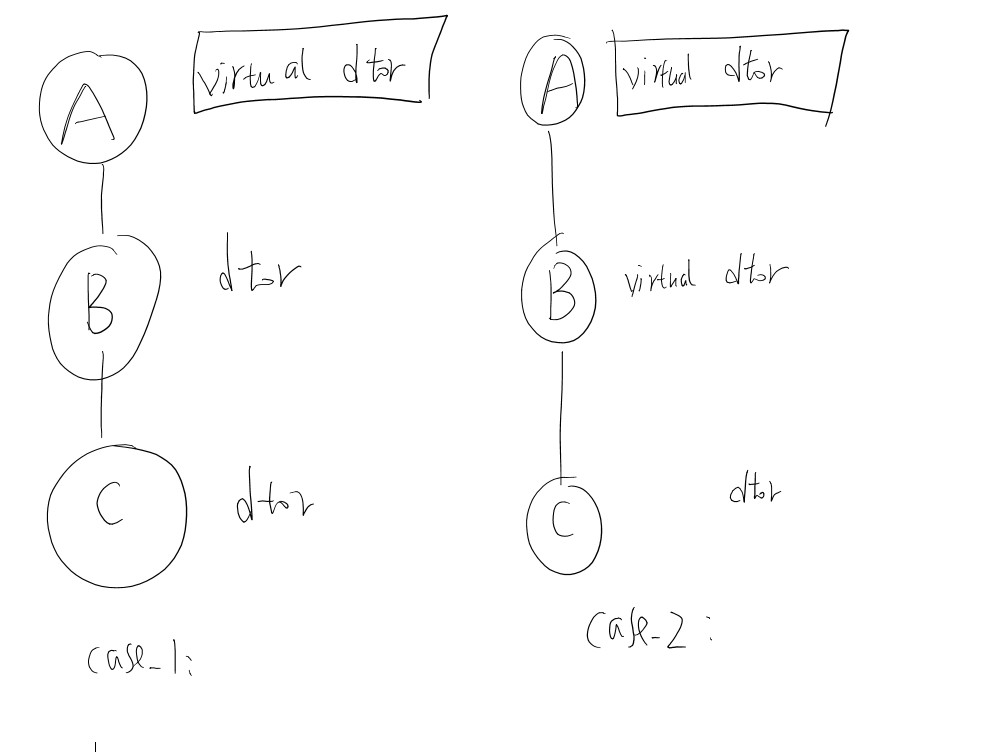 A virtual dtor
B dtor
C dtor
case_1:
A virtual dtor
B virtual dtor
C dtor
case_2: